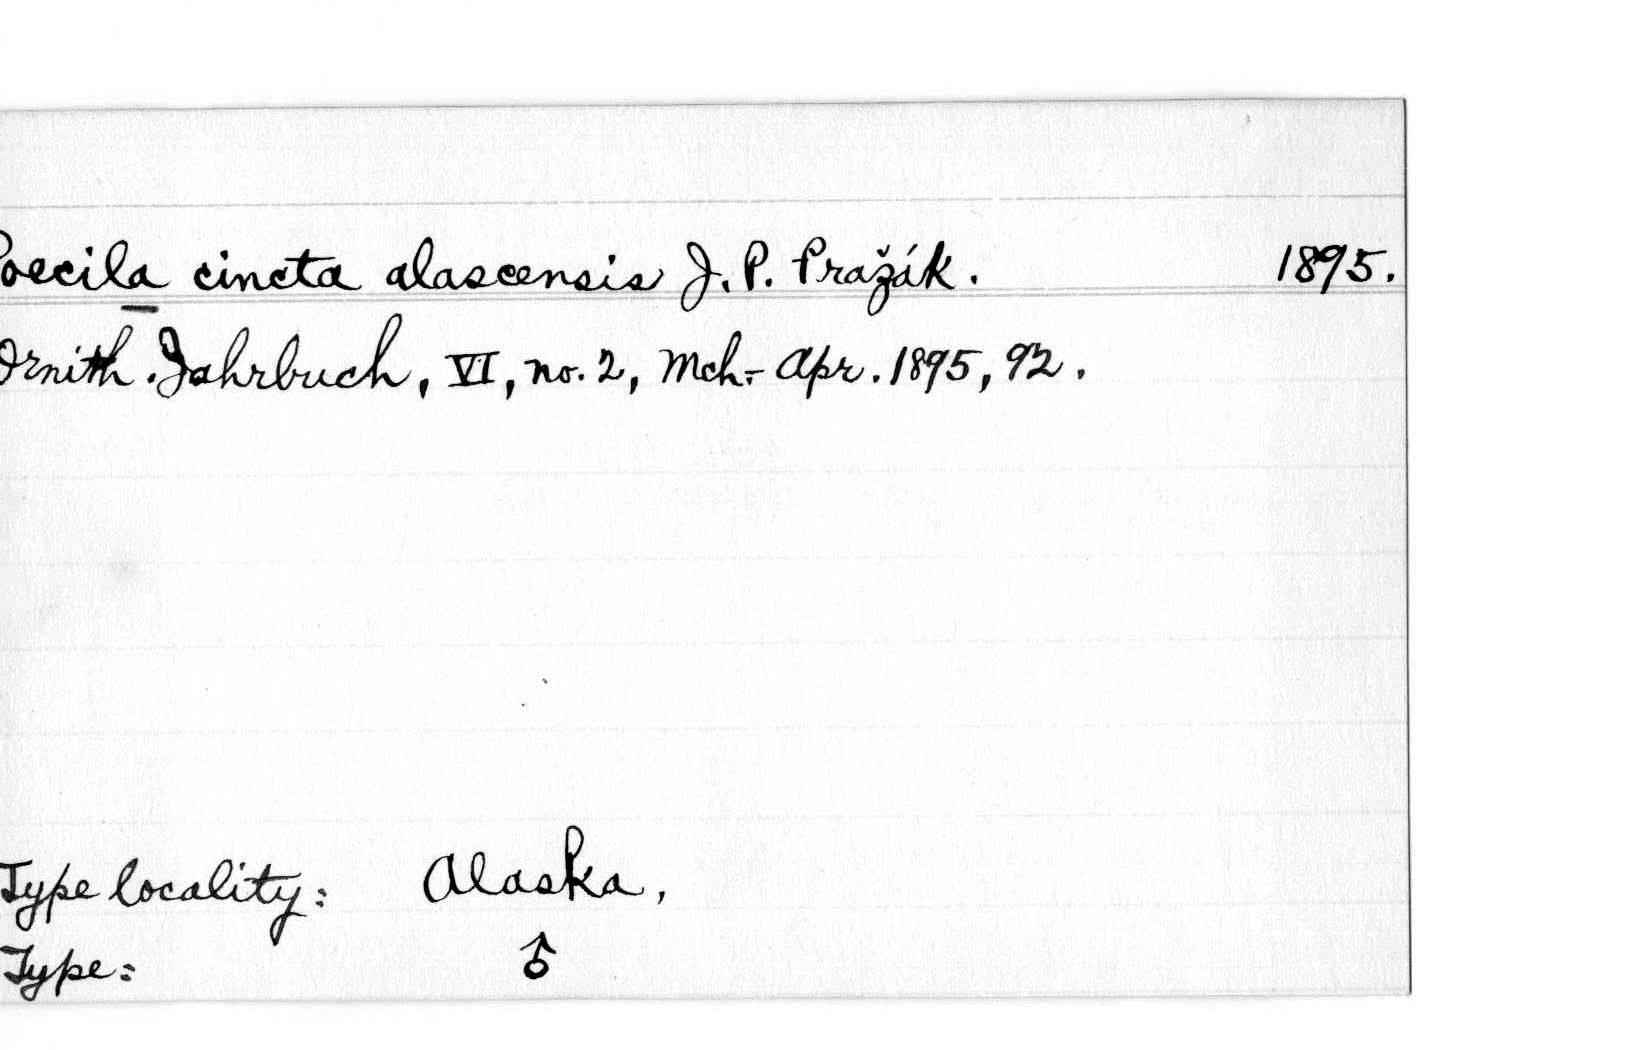 Poecila cincta alascensis J. P. Pražák. 1895.
Ornith. Jahrbuch, VI, no. 2, Mch.- Apr. 1895, 92.
Type locality: Alaska,
Type: ♂